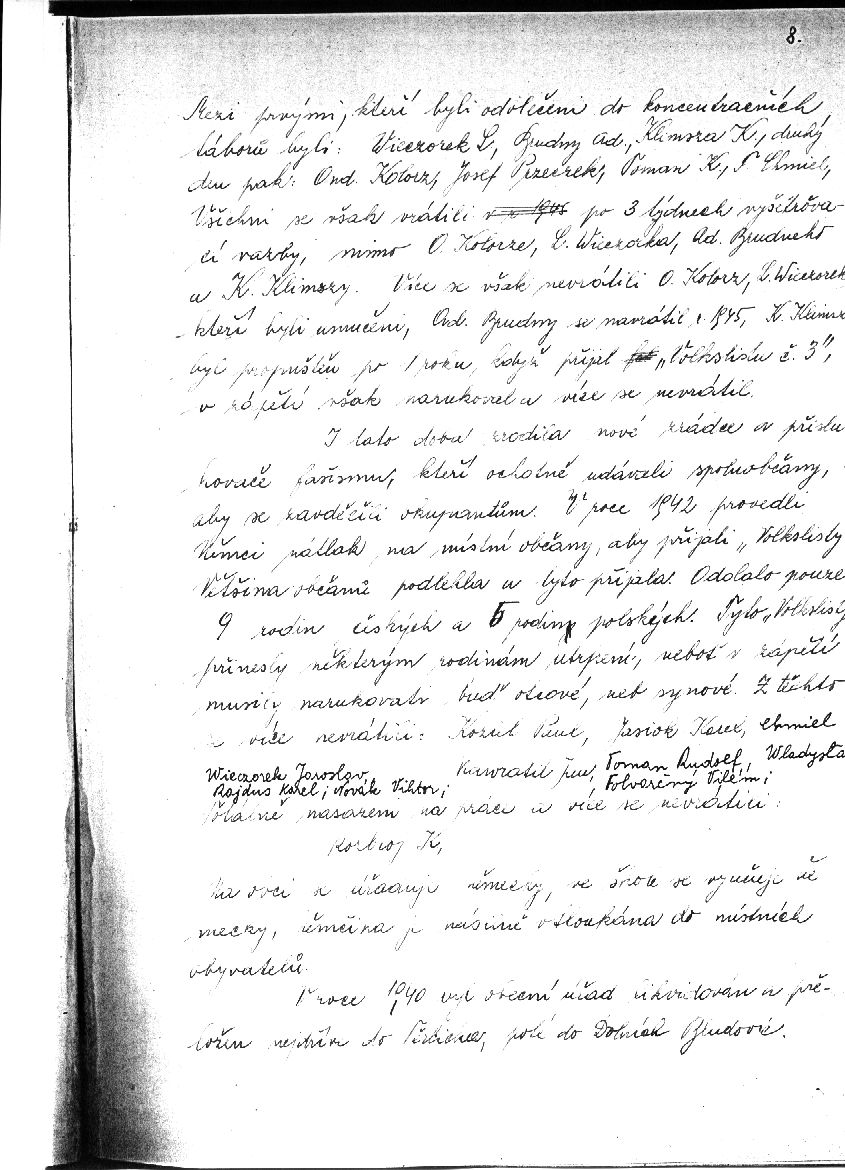 8.
Mezi prvými, kteří byli odvlečeni do koncentračních
táborů byli: Wieczorek L, Brudny Ad., Klimsza K., druhý
den pak: Ond. Kolorz, Josef Przeczek, Toman K., F. Chmiel,
Všichni se však vrátili v r. 1945 po 3 týdnech vyšetřova-
cí vazby, mimo O. Kolorze, L. Wieczorka, Ad. Brudneho
a K. Klimszy. Více se však nevrátili O. Kolorz, L. Wieczorek
kteří byli umučeni, Ad. Brudny se navrátil r. 1945, K. Klimsz
byl propuštěn po 1 roku, když přijal "Volkslistu č. 3",
v zápětí však narukoval a více se nevrátil.
I tato doba zrodila nové zrádce a přislu
hovače fašismu, kteří ochotně udávali spoluobčany,
aby se zavděčili okupantům. V roce 1942 provedli
Němci nátlak na místní občany, aby přijali "Volkslisty
Většina občanů podlehla a tyto přijala. Odolalo pouze
9 rodin českých a 5 rodin polských. Tyto "Volkslisty
přinesly některým rodinám utrpení, neboť v zápětí
musily narukovati buď otcové, neb synové. Z těchto
se více nevrátili: Kozul Jasiok Karel, Chmiel
Wieczorek Jaroslav, Kawratil Jan, Toman Rudolf, Wladysła
Rajdus Karel; Novák Viktor; Folvarčný Vilém;
Totálně nasazeni na práce a více se nevrátili:
K,
Na obci se úřaduje německy, ve škole se vyučuje ně
mecky, němčina je násilně vtloukána do místních
obyvatelů.
V roce 1940 byl obecní úřad likvidován a pře-
ložen nejdříve do poté do Dolních Bludovic.